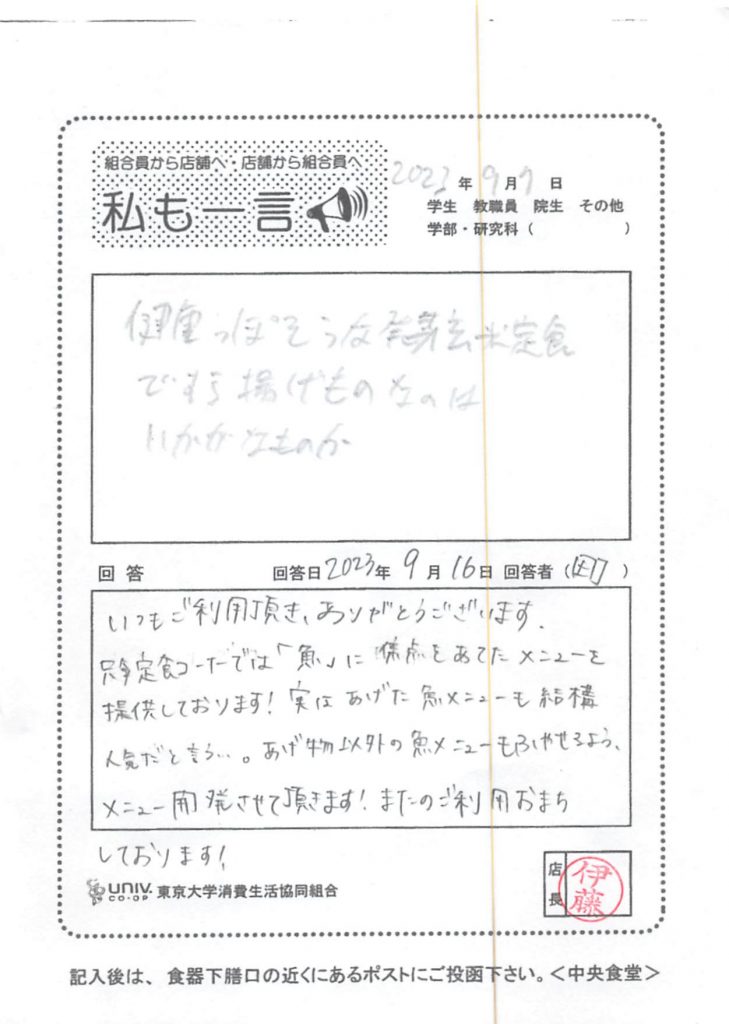 組合員から店舗へ・店舗から組合員へ
私も一言
2023年9月7日
学生 教職員 院生 その他
学部・研究科( )
健康っぽそうな 玄米定食
ですら揚げものなのは
いかがなものか
回答 回答日2023年9月16日 回答者( )
いつもご利用頂き、ありがとうございます。
定食コーナーでは「魚」に焦点をあてたメニューを
提供しております!実はあげた魚メニューも結構
人気だと言う…。あげ物以外の魚メニューもふやせるよう、
メニュー開発させて頂きます!またのご利用おまち
しております!
UNIV. CO-OP 東京大学消費生活協同組合
店長 伊藤
記入後は、食器下膳口の近くにあるポストにご投函下さい。<中央食堂>